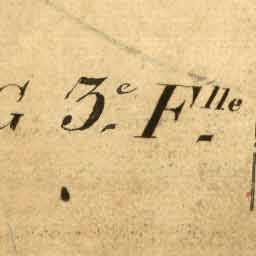 G 3.e F.lle